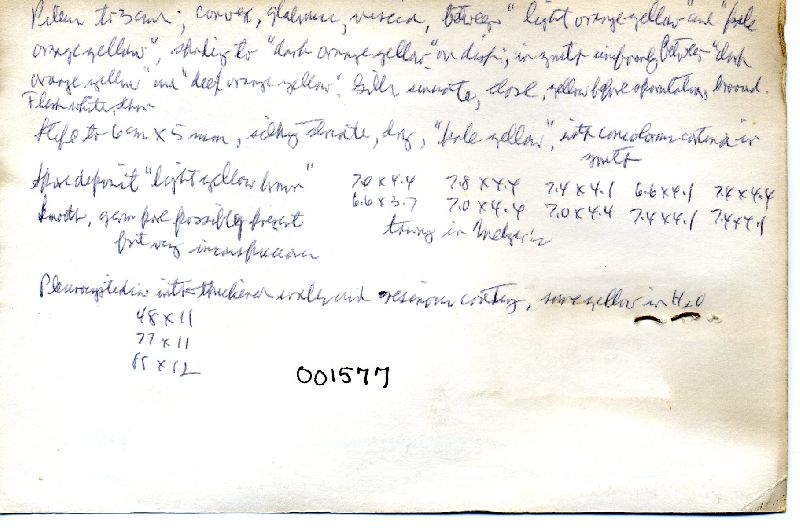 Pileus to 3 cm; convex, glabrous, viscid, between "light orange yellow" and "pale
orange yellow", shading to "dark orange yellow" on disk; in youth uniformly between "dark
orange yellow" and "deep orange yellow". Gills sinuate, close, yellow before sporulation, broad.
Flesh white, thin
Stipe to 6 cm x 5 mm, silky striate, dry, "pale yellow", with concolorous cortina in
youth
Spore deposit "light yellow brown" 7.0 x 4.4 7.8 x 4.4 7.4 x 4.1 6.6 x 4.1 7.4 x 4.4
6.6 x 3.7 7.0 x 4.4 7.0 x 4.4 7.4 x 4.1 7.4 x 4.1
Smooth, germ pore possibly present tawny in Melzer's
but very inconspicuous
Pleurocystidia with thickened walls and resinous coating, some yellow in H2O
48 x 11
77 x 11
x 12
001577